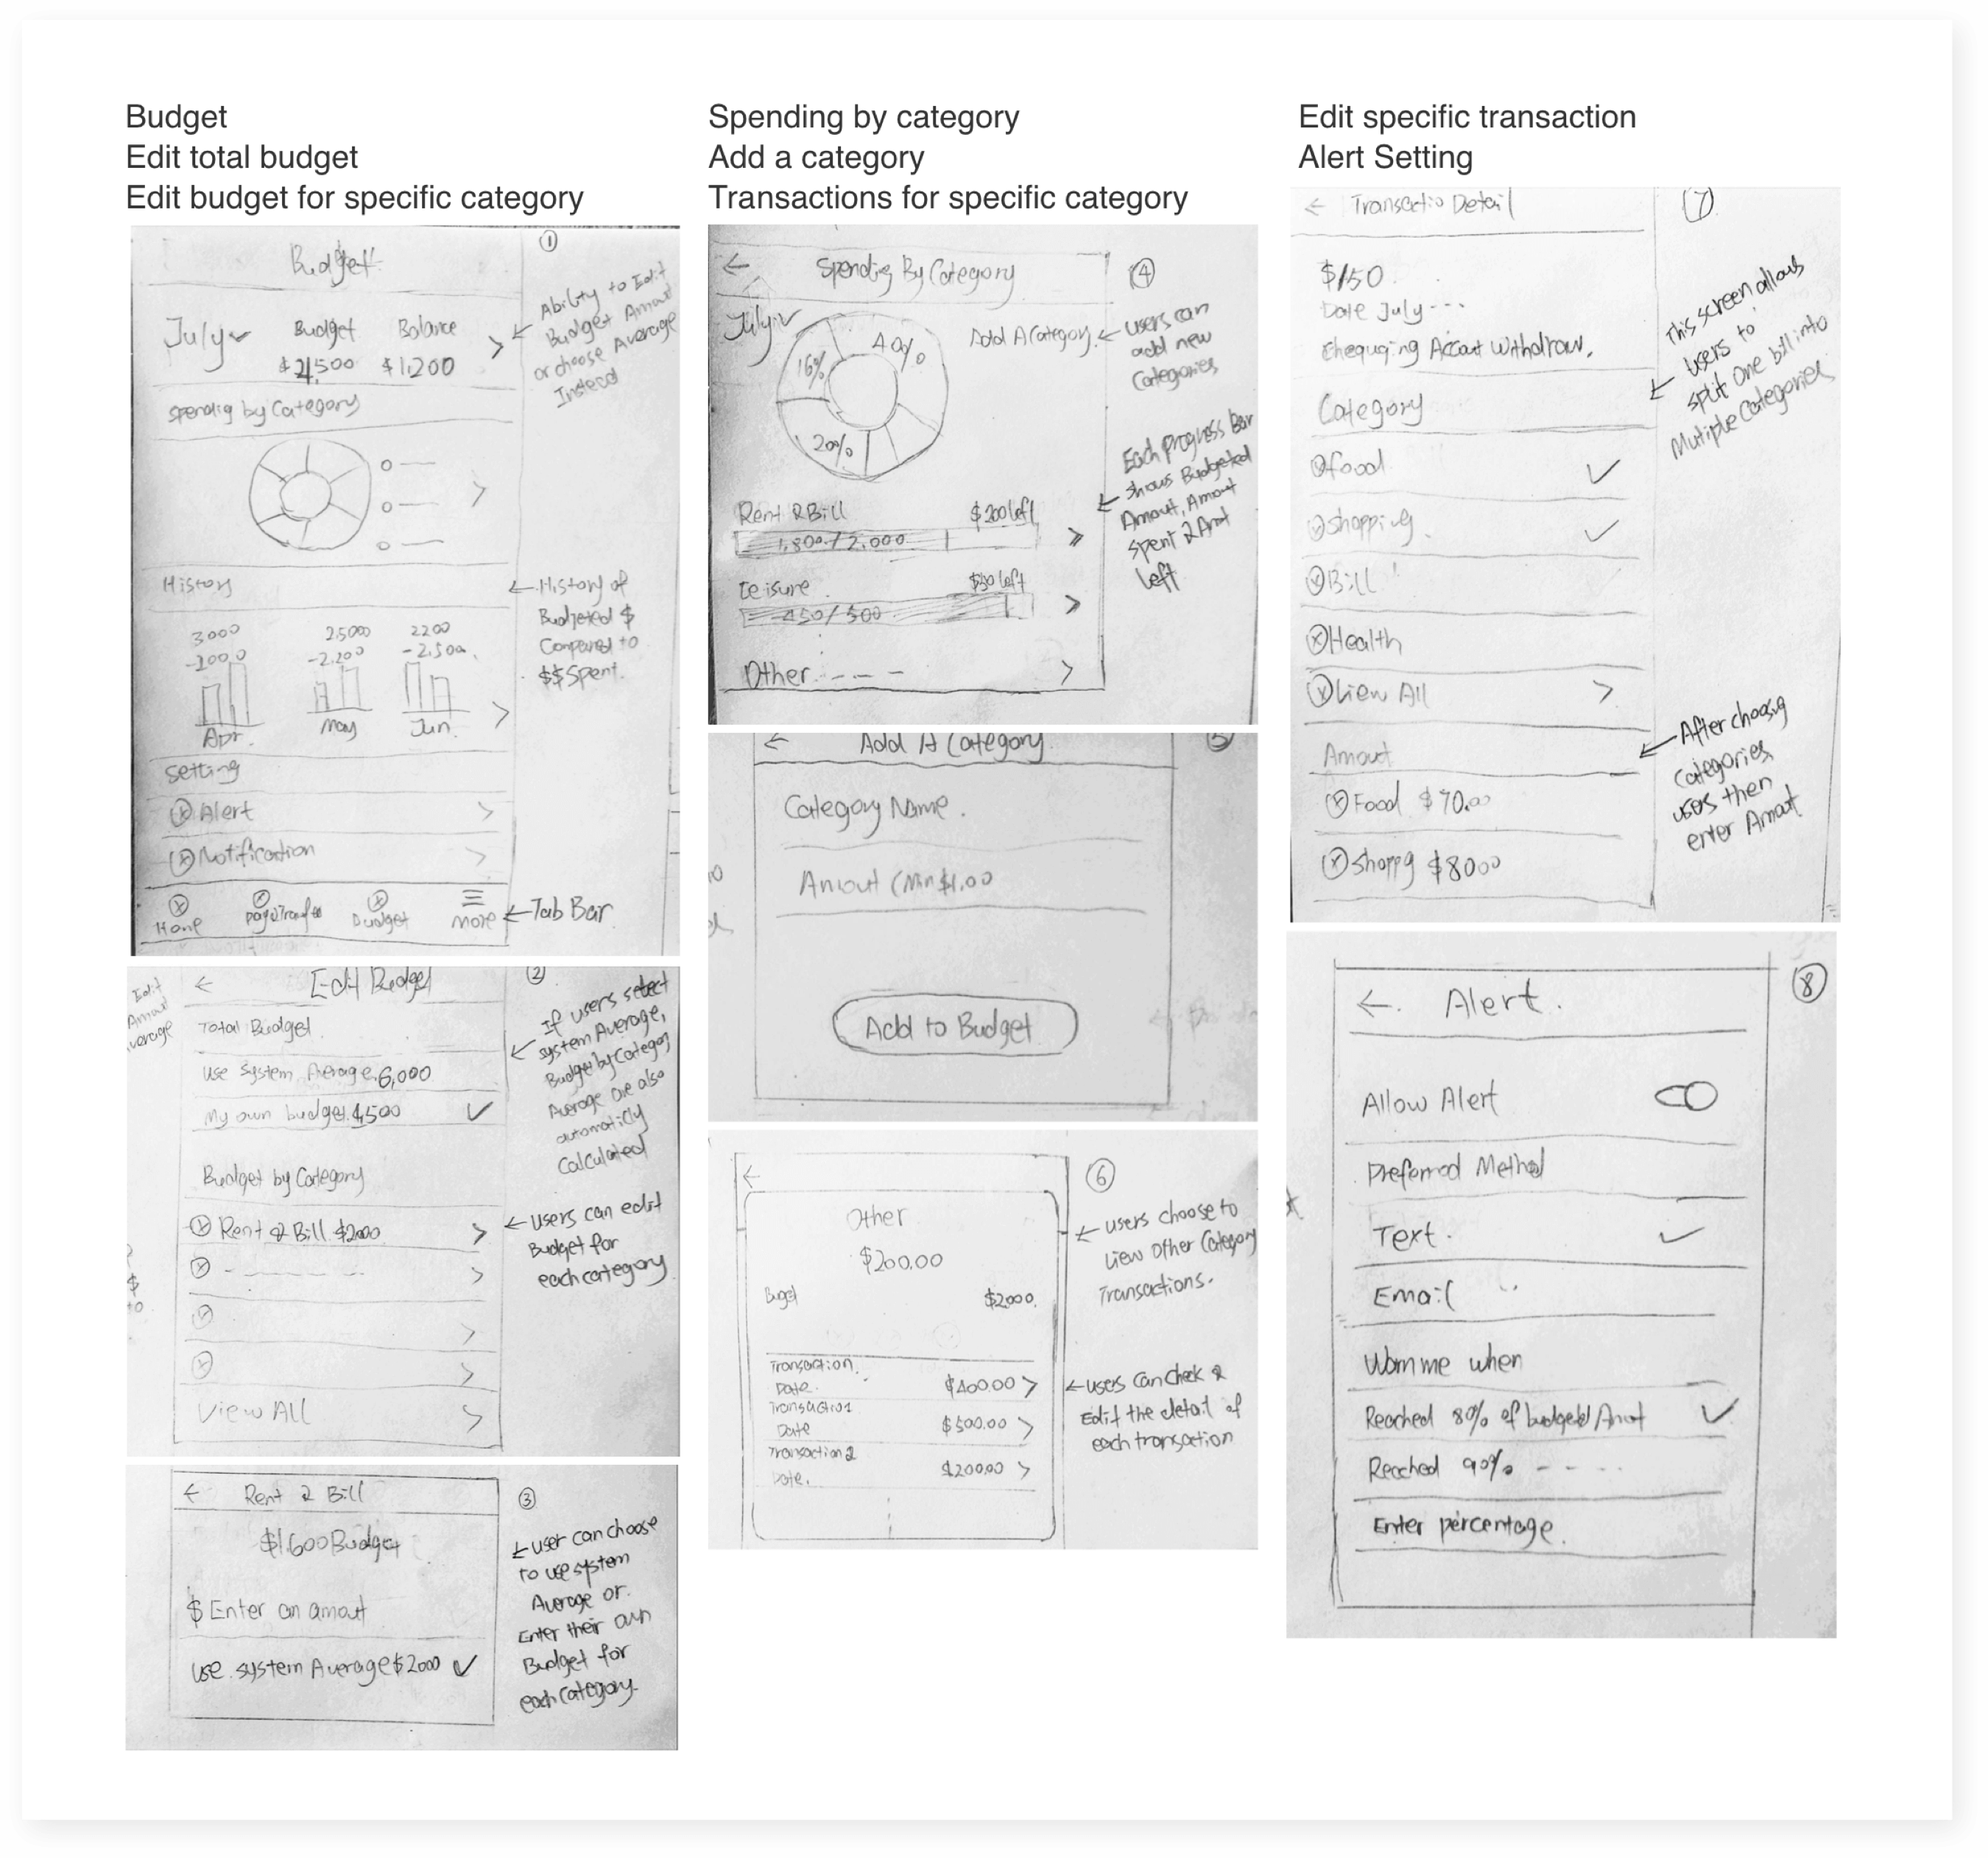 Budget
Edit total budget
Edit budget for specific category
Budget
①
July
Budget
Balance
$4,500
$1,200
Ability to Edit
Budget Amout
or choose Average
Instead
Spendig by Category
History
History of
Budgeted $
Compared to
$$ Spent.
3000
25000
2200
-2,200
-2,500
Apr.
May
Jun.
Setting
Alert
Notification
Home
Budget
More
Tab Bar
Edit
Amout
Average
Edit Budget
②
Total Budget
use System Average 6,000
My own budget 4,500
If users select
system Average,
Budget by Category
Average are also
automaticly
Calculated
Budget by Category
Rent & Bill $2000
users can edit
Budget for
each category
View All
Rent & Bill
③
$1,600 Budget
$ Enter an amout
use system Average $2000
user can choose
to use system
Average or
Enter their own
Budget for
each Category.
Spending by category
Add a category
Transactions for specific category
Spendig By Category
④
July
40%
16%
20%
Add A Category
users can
add new
Categories
Rent & Bill
$200 left
1,800 / 2,000
Leisure
$50 left
450 / 500
Other
Each progress Bar
shows Budgeted
Amout, Amout
spent & Amt
left
Add A Category
⑤
Category Name.
Amout (Min $1.00
Add to Budget
⑥
Other
$200.00
Buget
$2000.
users choose to
View Other Category
Transactions.
Transaction.
Date.
$400.00
Transaction
Date
$500.00
Transaction 2
Date.
$200.00
users can check &
Edit the detail of
each transaction
Edit specific transaction
Alert Setting
Transactio Detail
⑦
$150.
Date July ---
Chequqing Accout Withdraw.
This screen allows
users to
split One bill into
Mutiple Categories
Category
food
shopping.
Bill
Health
View All
Amout
Food $70.00
Shoppg $80.00
After choosig
Categories
users then
enter Amout
⑧
Alert.
Allow Alert
Preferred Method
Text.
Email
Warn me when
Reached 80% of budgeted Amt
Reached 90% ----
Enter percentage.